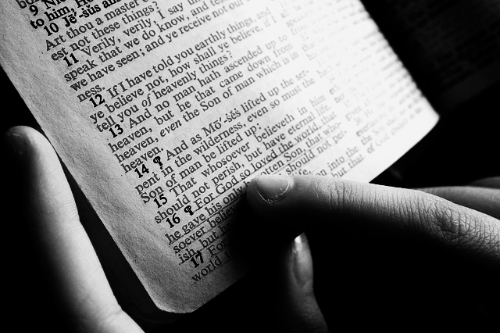 9 Nic
to him, H
10 Jē'-sus
Art thou a master
est not these things?
11 Verily, verily, I say
speak that we do know, and te
we have seen; and ye receive not our
ness.
12 If I have told you earthly things, and
ye believe not, how shall ye believe, if I
tell you of heavenly things?
13 And no man hath ascended up to
heaven, but he that came down from
heaven, even the Son of man which is in
heaven.
14 ¶ And as Mō'-ṡēṡ lifted up the ser-
pent in the wilderness, even so must the
Son of man be lifted up:
15 That whosoever believeth in him
should not perish, but have eternal life.
16 ¶ For God so loved the world, that
he gave his only Son, that who-
soever believ should not per-
ish, but
17 For into the
world but that